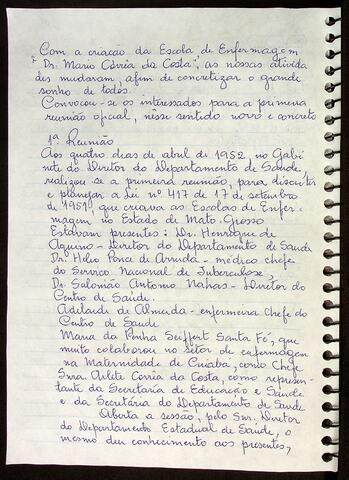 Com a criação da Escola de Enfermagem
"Dr. Mario Corrêa da Costa", as nossas ativida
des mudaram, afim de concretizar o grande
sonho de todos.
Convocou-se os interessados para a primeira
reunião oficial, nesse sentido novo e concreto
1ª Reunião
Aos quatro dias de abril de 1952, no Gabi
nete do Diretor do Departamento de Saúde,
realizou-se a primeira reunião, para discutir
e planejar a Lei nº 417 de 17 de setembro
de 1951, que criava as Escolas de Enfer-
magem no Estado de Mato-Grosso
Estavam presentes: Dr. Henrique de
Aquino - Diretor do Departamento de Saúde
Dr. Helio Ponce de Arruda - médico chefe
do Serviço Nacional de Tuberculose,
Dr. Salomão Antonio Nahas - Diretor do
Centro de Saúde.
Adelaide de Almeida - enfermeira Chefe do
Centro de Saude
Maria da Penha Seiffert Santa Fé, que
muito colaborou no setor de enfermagem
na Maternidade de Cuiabá, como Chefe
Snra. Arlete Corrêa da Costa, como represen-
tante da Secretaria de Educação e Saúde
e da Secretária do Departamento de Saude
Aberta a sessão, pelo Snr. Diretor
do Departamento Estadual de Saude, o
mesmo deu conhecimento aos presentes,